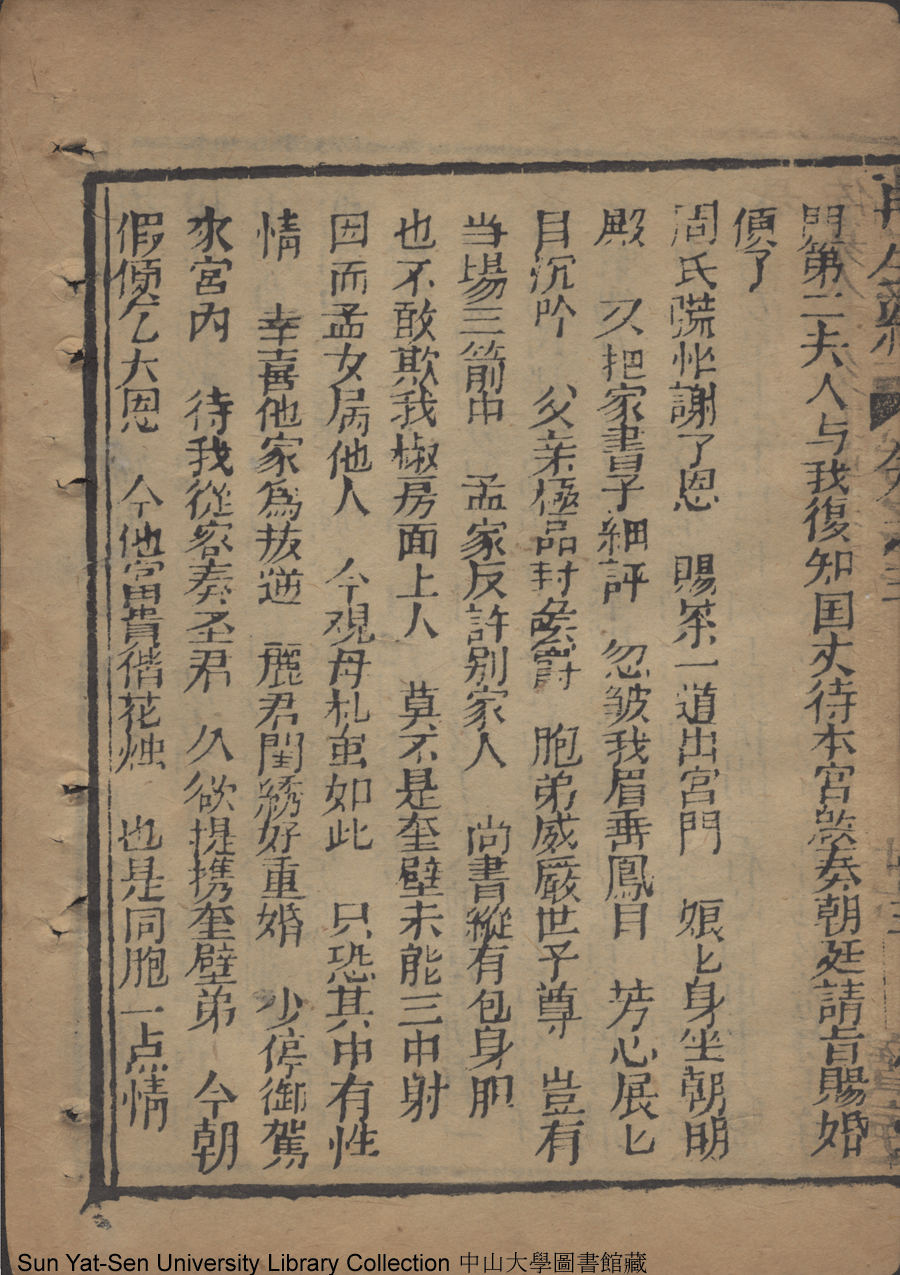 門第二夫人与我復知囯丈待本宮啟奏朝廷請旨賜婚
便了
周氏慌忙謝了恩　賜茶一道出宮門　娘匕身坐朝明
殿　又把家書子細評　忽皱我眉垂鳳目　芳心展匕
目沉吟　父亲極品封侯爵　胞弟威嚴世子尊　豈有
当場三箭中　孟家反許別家人　尚書縱有包身胆
也不敢欺我椒房面上人　莫不是奎壁未能三中射
因而孟女屬他人　今观母札虽如此　只恐其中有性
情　幸喜他家為扳逆　麗君閨綉好重婚　少停御駕
來宮內　待我從容奏圣君　久欲提携奎壁弟　今朝
假便乞大恩　今他富貴偕花烛　也是同胞一点情
Sun Yat-Sen University Library Collection 中山大學圖書館藏